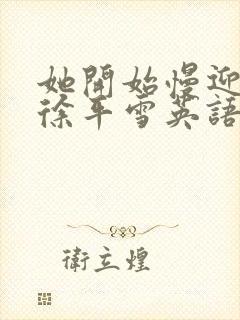 她開始慢迎
徐平雪英語
衛立煌